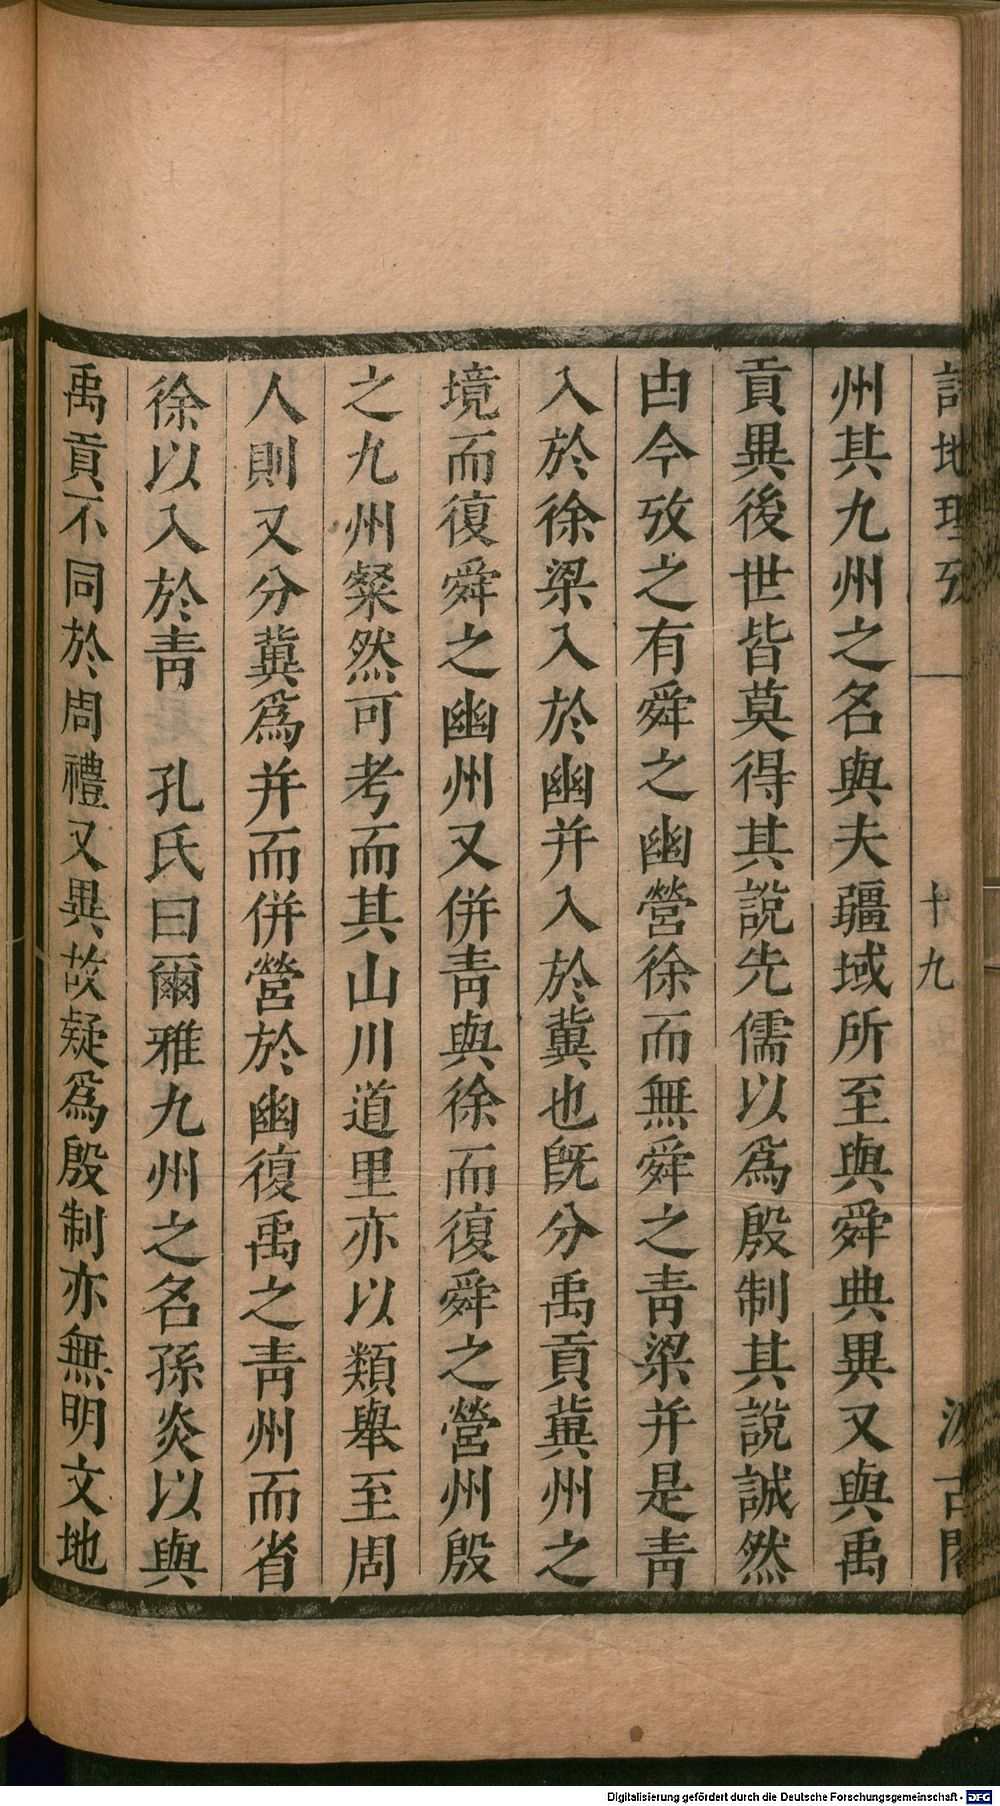 詩地理攷
十九
汲古閣
州其九州之名與夫疆域所至與舜典異又與禹
貢異後世皆莫得其說先儒以爲殷制其說誠然
由今攷之有舜之幽營徐而無舜之靑梁并是靑
入於徐梁入於幽并入於冀也旣分禹貢冀州之
境而復舜之幽州又併靑與徐而復舜之營州殷
之九州粲然可考而其山川道里亦以類舉至周
人則又分冀爲并而併營於幽復禹之靑州而省
徐以入於靑 孔氏曰爾雅九州之名孫炎以與
禹貢不同於周禮又異故疑爲殷制亦無明文地
Digitalisierung gefördert durch die Deutsche Forschungsgemeinschaft - DFG